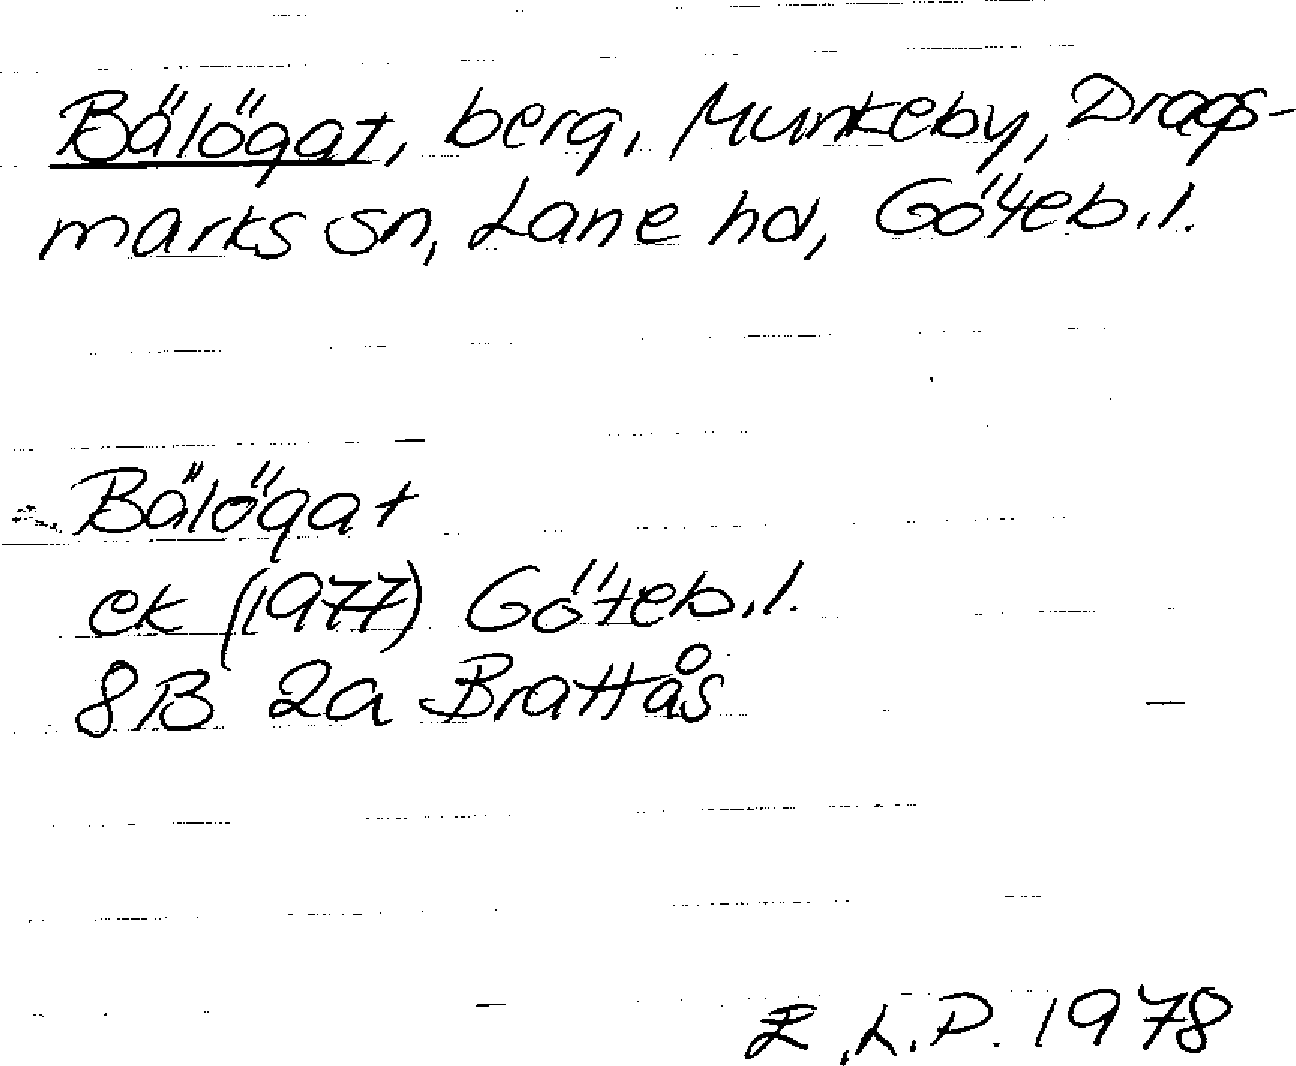 Bälögat, berg, Munkeby, Drags-
marks sn, Lane hd, Göteb.l.
Bälögat
ek (1977) Göteb.l.
8B 2a Brattås
R.L.P. 1978